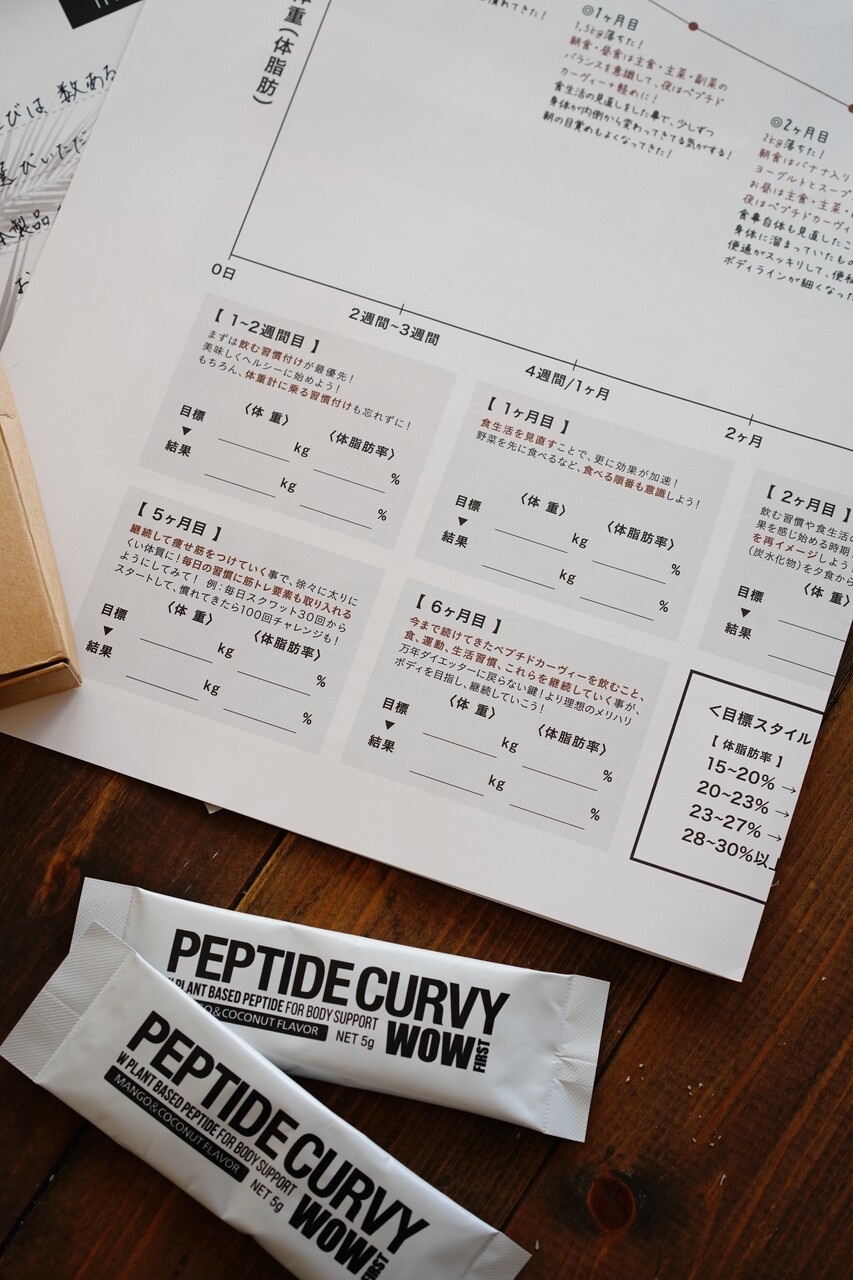 びは 数ある
選びいただ
本製品
お
体重(体脂肪)
慣れてきた!
◎1ヶ月目
1.5kg落ちた!
朝食・昼食は主食・主菜・副菜の
バランスを意識して、夜はペプチド
カーヴィー+軽めに!
食生活の見直しをした事で、少しずつ
身体が内側から変わってきてる気がする!
朝の目覚めもよくなってきた!
◎2ヶ月目
2kg落ちた!
朝食はバナナ入り
ヨーグルトとスープ
お昼は主食・主菜・
夜はペプチドカーヴィ
食事自体も見直したこ
身体に溜まっていたもの
便通がスッキリして、便秘
ボディラインが細くなった
0日
2週間~3週間
4週間/1ヶ月
2ヶ月
【 1~2週間目 】
まずは飲む習慣付けが最優先!
美味しくヘルシーに始めよう!
もちろん、体重計に乗る習慣付けも忘れずに!
〈体 重〉 〈体脂肪率〉
目標 kg %
▼
結果 kg %
【 1ヶ月目 】
食生活を見直すことで、更に効果が加速!
野菜を先に食べるなど、食べる順番も意識しよう!
〈体 重〉 〈体脂肪率〉
目標 kg %
▼
結果 kg %
【 2ヶ月目 】
飲む習慣や食生活の
果を感じ始める時期
を再イメージしよう
(炭水化物)を夕食から
〈体 重
目標
▼
結果
【 5ヶ月目 】
継続して痩せ筋をつけていく事で、徐々に太りに
くい体質に!毎日の習慣に筋トレ要素も取り入れる
ようにしてみて! 例:毎日スクワット30回から
スタートして、慣れてきたら100回チャレンジも!
〈体 重〉 〈体脂肪率〉
目標 kg %
▼
結果 kg %
【 6ヶ月目 】
今まで続けてきたペプチドカーヴィーを飲むこと、
食、運動、生活習慣、これらを継続していく事が、
万年ダイエッターに戻らない鍵!より理想のメリハリ
ボディを目指し、継続していこう!
〈体 重〉 〈体脂肪率〉
目標 kg %
▼
結果 kg %
<目標スタイル
【 体脂肪率 】
15~20% →
20~23% →
23~27% →
28~30%以上
PEPTIDE CURVY
W PLANT BASED PEPTIDE FOR BODY SUPPORT
O&COCONUT FLAVOR NET 5g
WOW FIRST
PEPTIDE CURVY
W PLANT BASED PEPTIDE FOR BODY SUPPORT
MANGO&COCONUT FLAVOR NET 5g
WOW FIRST